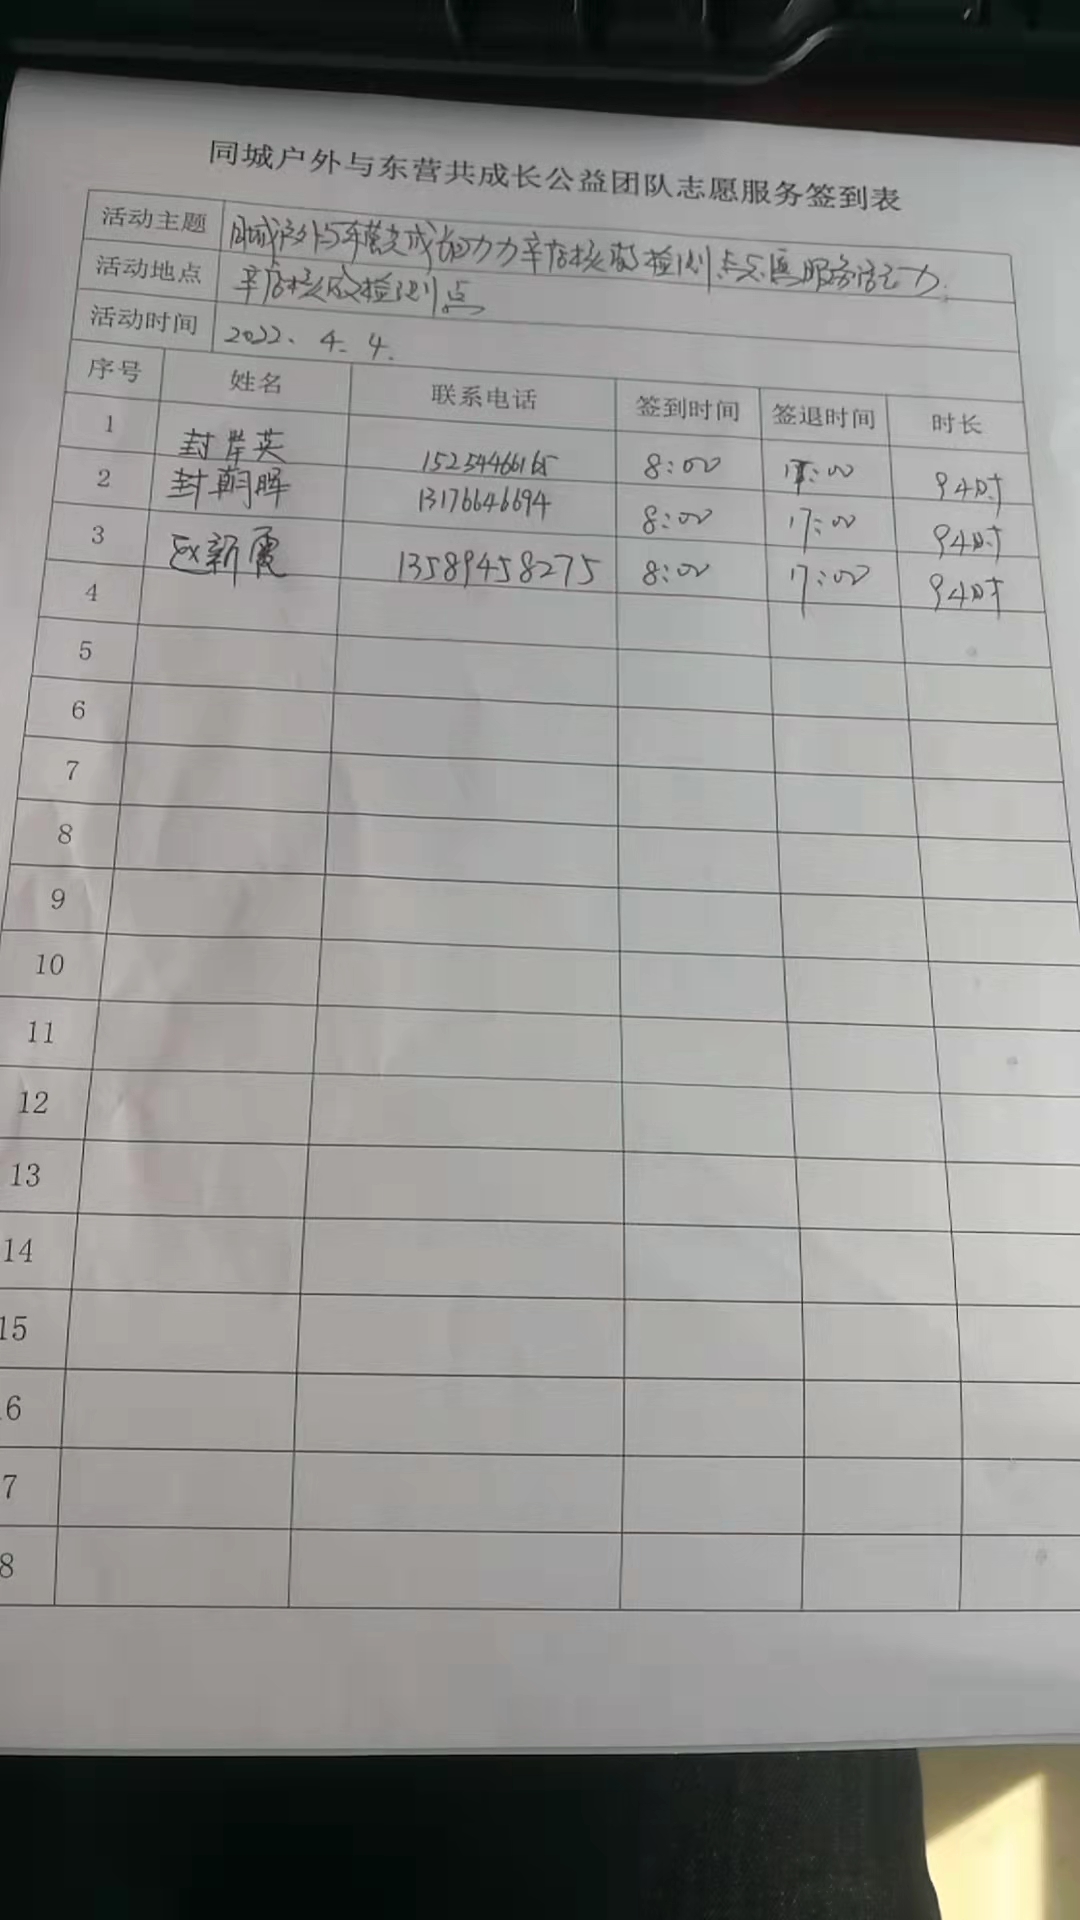 同城户外与东营共成长公益团队志愿服务签到表
活动主题 同城户外与东营共成长助力辛店核酸检测点志愿服务活动
活动地点 辛店核酸检测点
活动时间 2022.4.4.
序号 姓名 联系电话 签到时间 签退时间 时长
1 封岸英 15254466165 8:00 17:00 9小时
2 封朝晖 13176646694 8:00 17:00 9小时
3 赵新霞 13589458275 8:00 17:00 9小时
4
5
6
7
8
9
10
11
12
13
14
15
6
7
8